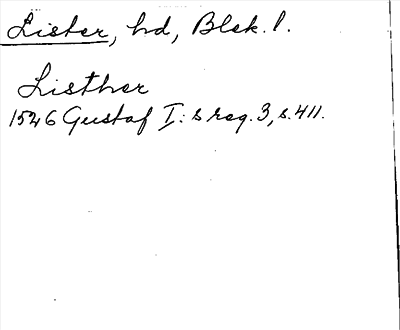 Lister, hd, Blek. l.
Listher
1526 Gustaf I:s reg. 3, s. 411.